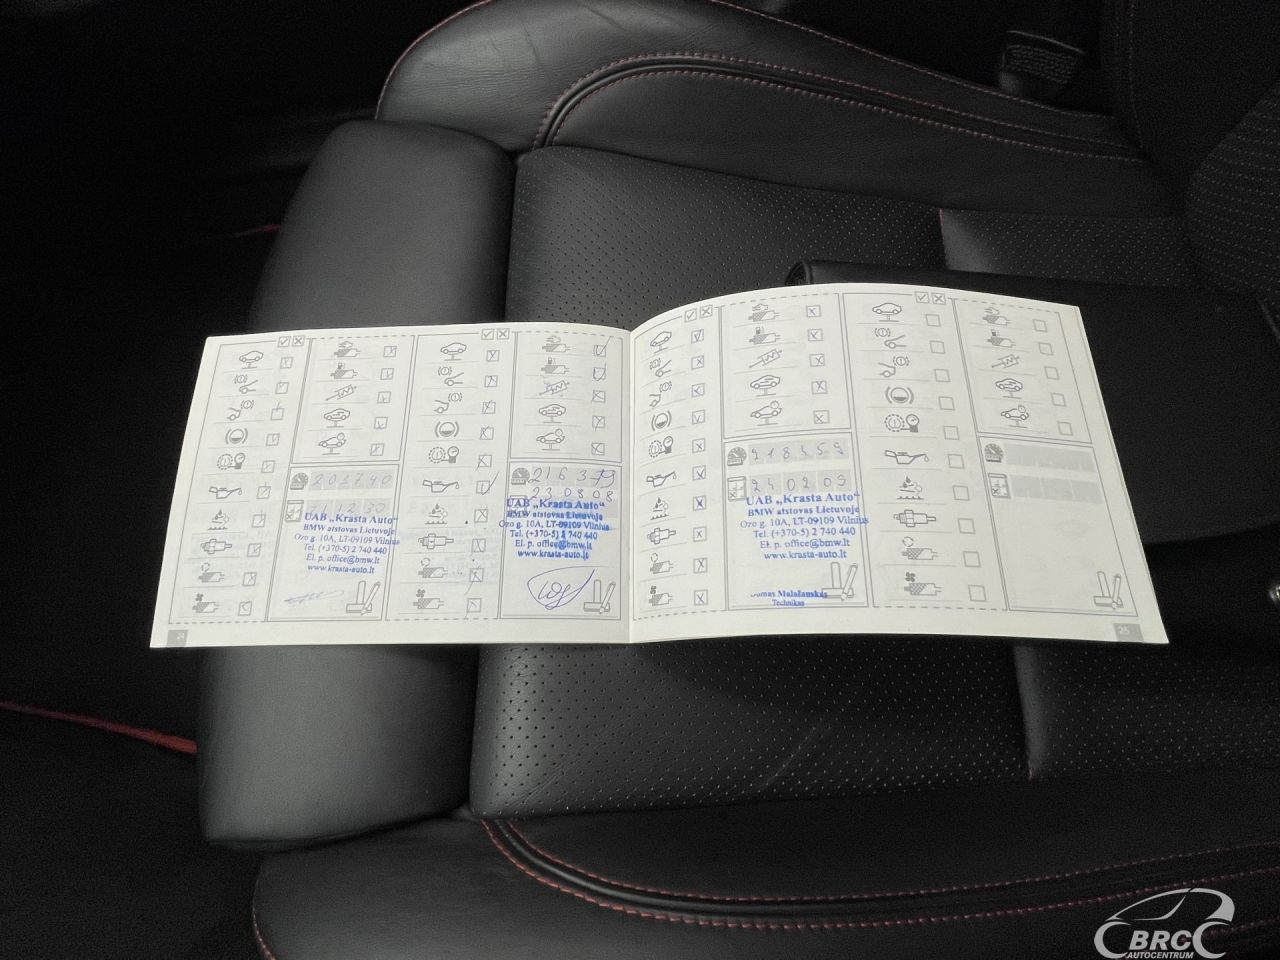 203740
UAB „Krasta Auto“
BMW atstovas Lietuvoje
Ozo g. 10A, LT-09109 Vilnius
Tel. (+370-5) 2 740 440
El. p. office@bmw.lt
www.krasta-auto.lt
24
216379
230808
UAB „Krasta Auto“
BMW atstovas Lietuvoje
Ozo g. 10A, LT-09109 Vilnius
Tel. (+370-5) 2 740 440
El. p. office@bmw.lt
www.krasta-auto.lt
218459
240209
UAB „Krasta Auto“
BMW atstovas Lietuvoje
Ozo g. 10A, LT-09109 Vilnius
Tel. (+370-5) 2 740 440
El. p. office@bmw.lt
www.krasta-auto.lt
Technikas
25
BRC
AUTOCENTRUM